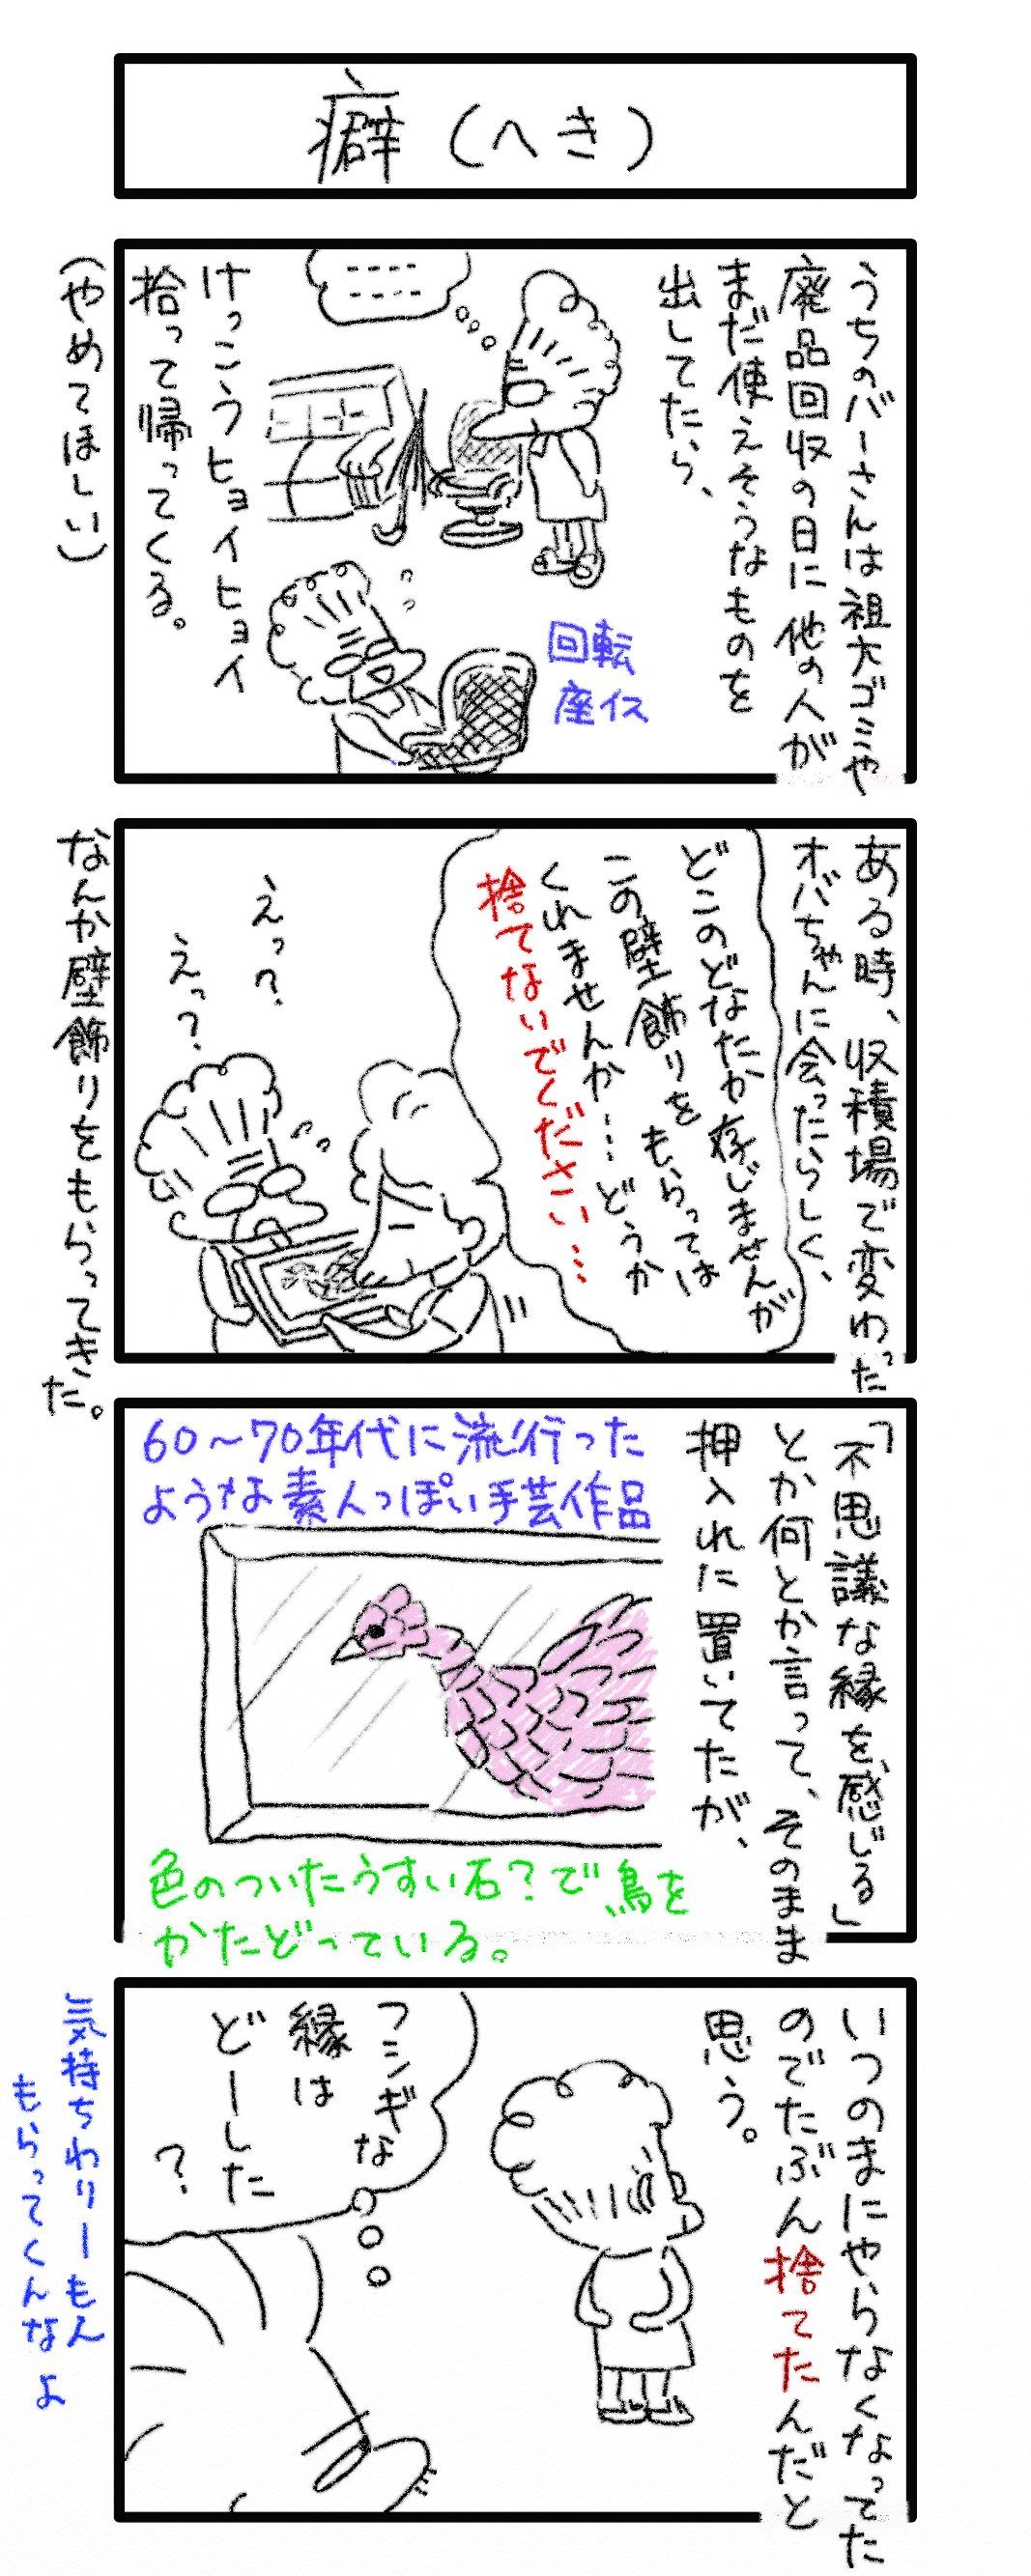 癖（へき）
うちのバーさんは祖大ゴミや
廃品回収の日に他の人が
まだ使えそうなものを
出してたら、
回転
座イス
けっこうヒョイヒョイ
拾って帰ってくる。
（やめてほしい）
ある時、収積場で変わった
オバちゃんに会ったらしく、
どこのどなたか存じませんが
この壁飾りをもらっては
くれませんか…どうか
捨てないでください…
えっ？
えっ？
なんか壁飾りをもらってきた。
「不思議な縁を、感じる」
とか何とか言って、そのまま
押入れに置いてたが、
60～70年代に流行った
ような素人っぽい手芸作品
色のついたうすい石？で鳥を
かたどっている。
いつのまにやらなくなってた
のでたぶん捨てたんだと
思う。
フシギな
縁は
どーした
？
気持ちわりーもん
もらってくんなよ